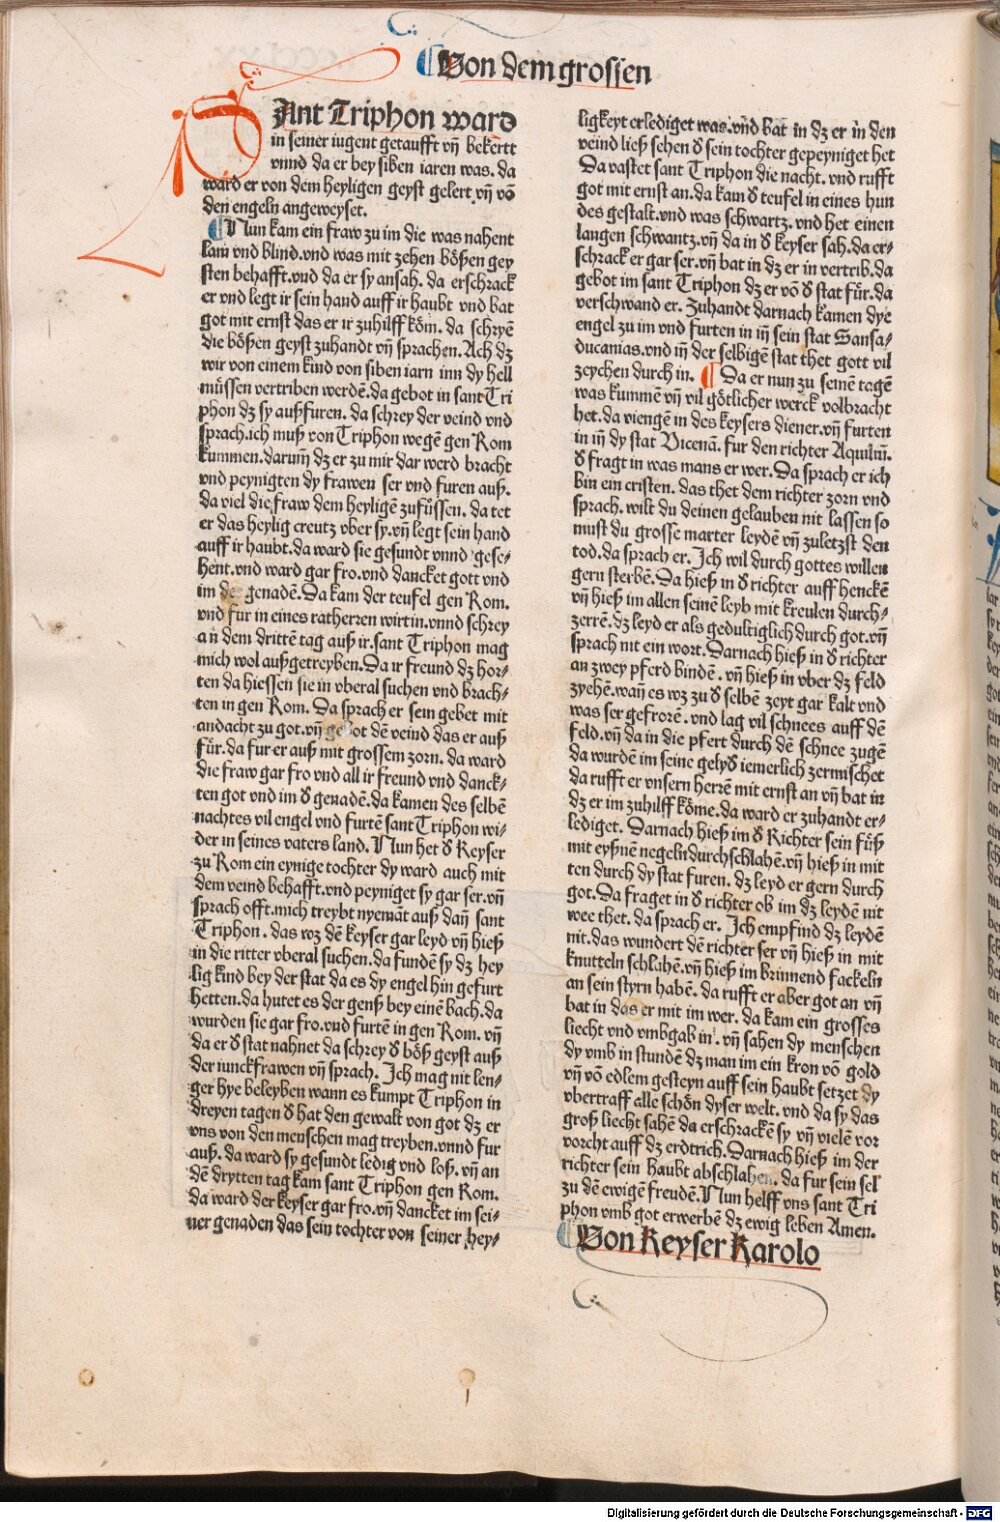 Von dem grossen
SAnt Triphon ward
in seiner iugent getaufft vñ bekertt
vnnd da er bey siben iaren was. da
ward er von dem heyligen geyst gelert. vñ võ
den engeln angeweyset.
Nun kam ein fraw zu im die was nahent
lam vnd blind. vnd was mit zehen bößen gey
sten behafft. vnd da er sy ansah. da erschrack
er vnd legt ir sein hand auff ir haubt vnd bat
got mit ernst das er ir zuhilff köm. da schryẽ
die bößen geyst zuhandt vñ sprachen. Ach dz
wir von einem kind von siben iarn inn dy hell
müssen vertriben werdẽ. da gebot in sant Tri
phon dz sy außfuren. da schrey der veind vnd
sprach. ich muß von Triphon wegẽ gen Rom
kummen. darum̃ dz er zu mir dar werd bracht
vnd peynigten dy frawen ser vnd furen auß.
da viel die fraw dem heyligẽ zufüssen. da tet
er das heylig creutz vber sy. vñ legt sein hand
auff ir haubt. da ward sie gesundt vnnd gese-
hent. vnd ward gar fro. vnd dancket gott vnd
im der genadẽ. Da kam der teufel gen Rom.
vnd fur in eines ratherren wirtin. vnnd schrey
an dem drittẽ tag auß ir. sant Triphon mag
mich wol außgetreyben. Da ir freund dz hor-
ten da hiessen sie in vberal suchen vnd brach-
ten in gen Rom. Da sprach er sein gebet mit
andacht zu got. vñ gebot dẽ veind das er auß
für. da fur er auß mit grossem zorn. da ward
die fraw gar fro vnd all ir freund vnd danck-
ten got vnd im d̕ genadẽ. da kamen des selbẽ
nachtes vil engel vnd furtẽ sant Triphon wi-
der in seines vaters land. Nun het d̕ Keyser
zu Rom ein eynige tochter dy ward auch mit
dem veind behafft. vnd peyniget sy gar ser. vñ
sprach offt. mich treybt nyemãt auß dañ sant
Triphon. das wz dẽ keyser gar leyd vñ hieß
in die ritter vberal suchen. da fundẽ sy dz hey
lig kind bey der stat da es dy engel hin gefurt
hetten. da hutet es der genß bey einẽ bach. da
wurden sie gar fro. vnd furtẽ in gen Rom. vñ
da er d̕ stat nahnet da schrey d̕ böß geyst auß
der iunckfrawen vñ sprach. Ich mag nit len-
ger hye beleyben wann es kumpt Triphon in
dreyen tagen d̕ hat den gewalt von got dz er
vns von den menschen mag treyben. vnnd fur
auß. da ward sy gesundt ledig vnd loß. vñ an
dẽ drytten tag kam sant Triphon gen Rom.
da ward der keyser gar fro. vñ dancket im sei-
ner genaden das sein tochter von seiner hey-
ligkeyt erlediget was. vnd bat in dz er in den
veind ließ sehen d̕ sein tochter gepeyniget het
Da vastet sant Triphon die nacht. vnd rufft
got mit ernst an. da kam d̕ teufel in eines hun
des gestalt. vnd was schwartz. vnd het einen
langen schwantz. vñ da in d̕ keyser sah. da er-
schrack er gar ser. vñ bat in dz er in vertrib. da
gebot im sant Triphon dz er võ d̕ stat für. da
verschwand er. Zuhandt darnach kamen dye
engel zu im vnd furten in iñ sein stat Sansa-
ducanias. vnd iñ der selbigẽ stat thet gott vil
zeychen durch in. Da er nun zu seinẽ tagẽ
was kummẽ vñ vil götlicher werck volbracht
het. da viengẽ in des keysers diener. vñ furten
in iñ dy stat Vicenã. fur den richter Aquilinũ.
d̕ fragt in was mans er wer. Da sprach er ich
bin ein cristen. das thet dem richter zorn vnd
sprach. wilt du deinen gelauben nit lassen so
must du grosse marter leydẽ vñ zuletzst den
tod. da sprach er. Ich wil durch gottes willen
gern sterbẽ. Da hieß in d̕ richter auff henckẽ
vñ hieß im allen seinẽ leyb mit kreulen durch-
zerrẽ. dz leyd er als gedultiglich durch got. vñ
sprach nit ein wort. Darnach hieß in d̕ richter
an zwey pferd bindẽ. vñ hieß in vber dz feld
zyehẽ. wañ es wz zu d̕ selbẽ zeyt gar kalt vnd
was ser gefrorẽ. vnd lag vil schnees auff dẽ
feld. vñ da in die pfert durch dẽ schnee zugẽ
da wurdẽ im seine gelyd̕ iemerlich zermischet
da rufft er vnsern herrẽ mit ernst an vñ bat in
dz er im zuhilff kõme. da ward er zuhandt er-
lediget. Darnach hieß im d̕ Richter sein füß
mit eyßnẽ negeln durchschlahẽ. vñ hieß in mit
ten durch dy stat furen. dz leyd er gern durch
got. Da fraget in d̕ richter ob im dz leydẽ nit
wee thet. da sprach er. Ich empfind dz leydẽ
nit. das wundert dẽ richter ser vñ hieß in mit
knutteln schlahẽ. vñ hieß im brinnend fackeln
an sein styrn habẽ. da rufft er aber got an vñ
bat in das er mit im wer. da kam ein grosses
liecht vnd vmbgab in. vñ sahen dy menschen
dy vmb in stundẽ dz man im ein kron võ gold
vñ võ edlem gesteyn auff sein haubt setzet dy
vbertraff alle schön dyser welt. vnd da sy das
groß liecht sahẽ da erschrackẽ sy vñ vielẽ vor
vorcht auff dz erdtrich. Darnach hieß im der
richter sein haubt abschlahen. da fur sein sel
zu dẽ ewigẽ freudẽ. Nun helff vns sant Tri
phon vmb got erwerbẽ dz ewig leben Amen.
Von keyser Karolo
Digitalisierung gefördert durch die Deutsche Forschungsgemeinschaft - DFG